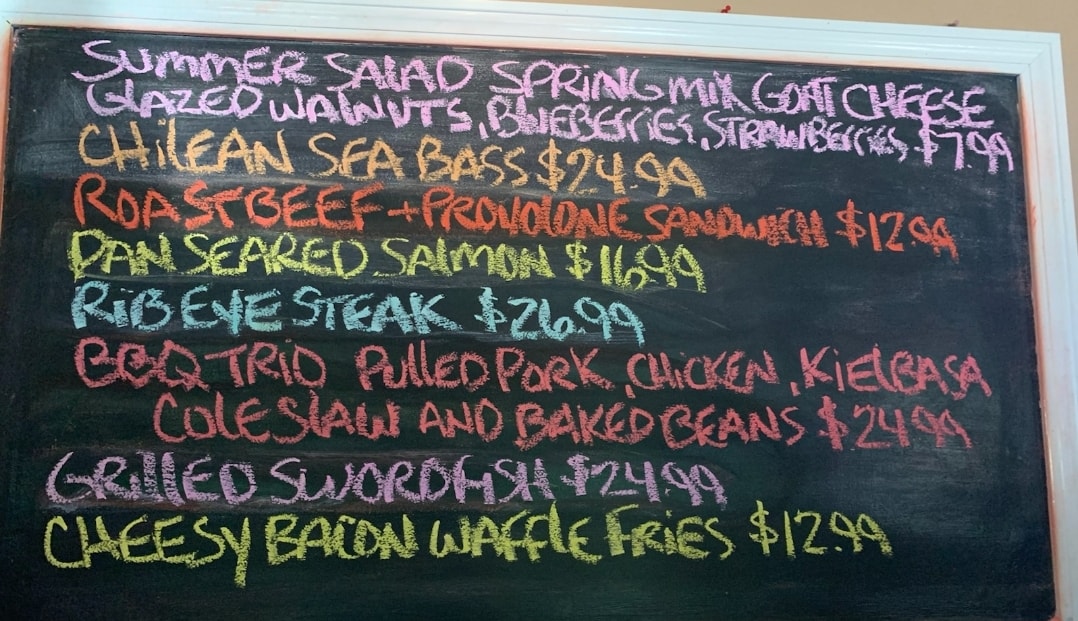 SUMMER SALAD SPRING MIX GOAT CHEESE
GLAZED WALNUTS, BLUEBERRIES, STRAWBERRIES $7.99
CHILEAN SEA BASS $24.99
ROAST BEEF + PROVOLONE SANDWICH $12.99
PAN SEARED SALMON $16.99
RIB EYE STEAK $26.99
BBQ TRIO PULLED PORK, CHICKEN, KIELBASA
COLESLAW AND BAKED BEANS $24.99
GRILLED SWORDFISH $24.99
CHEESY BACON WAFFLE FRIES $12.99